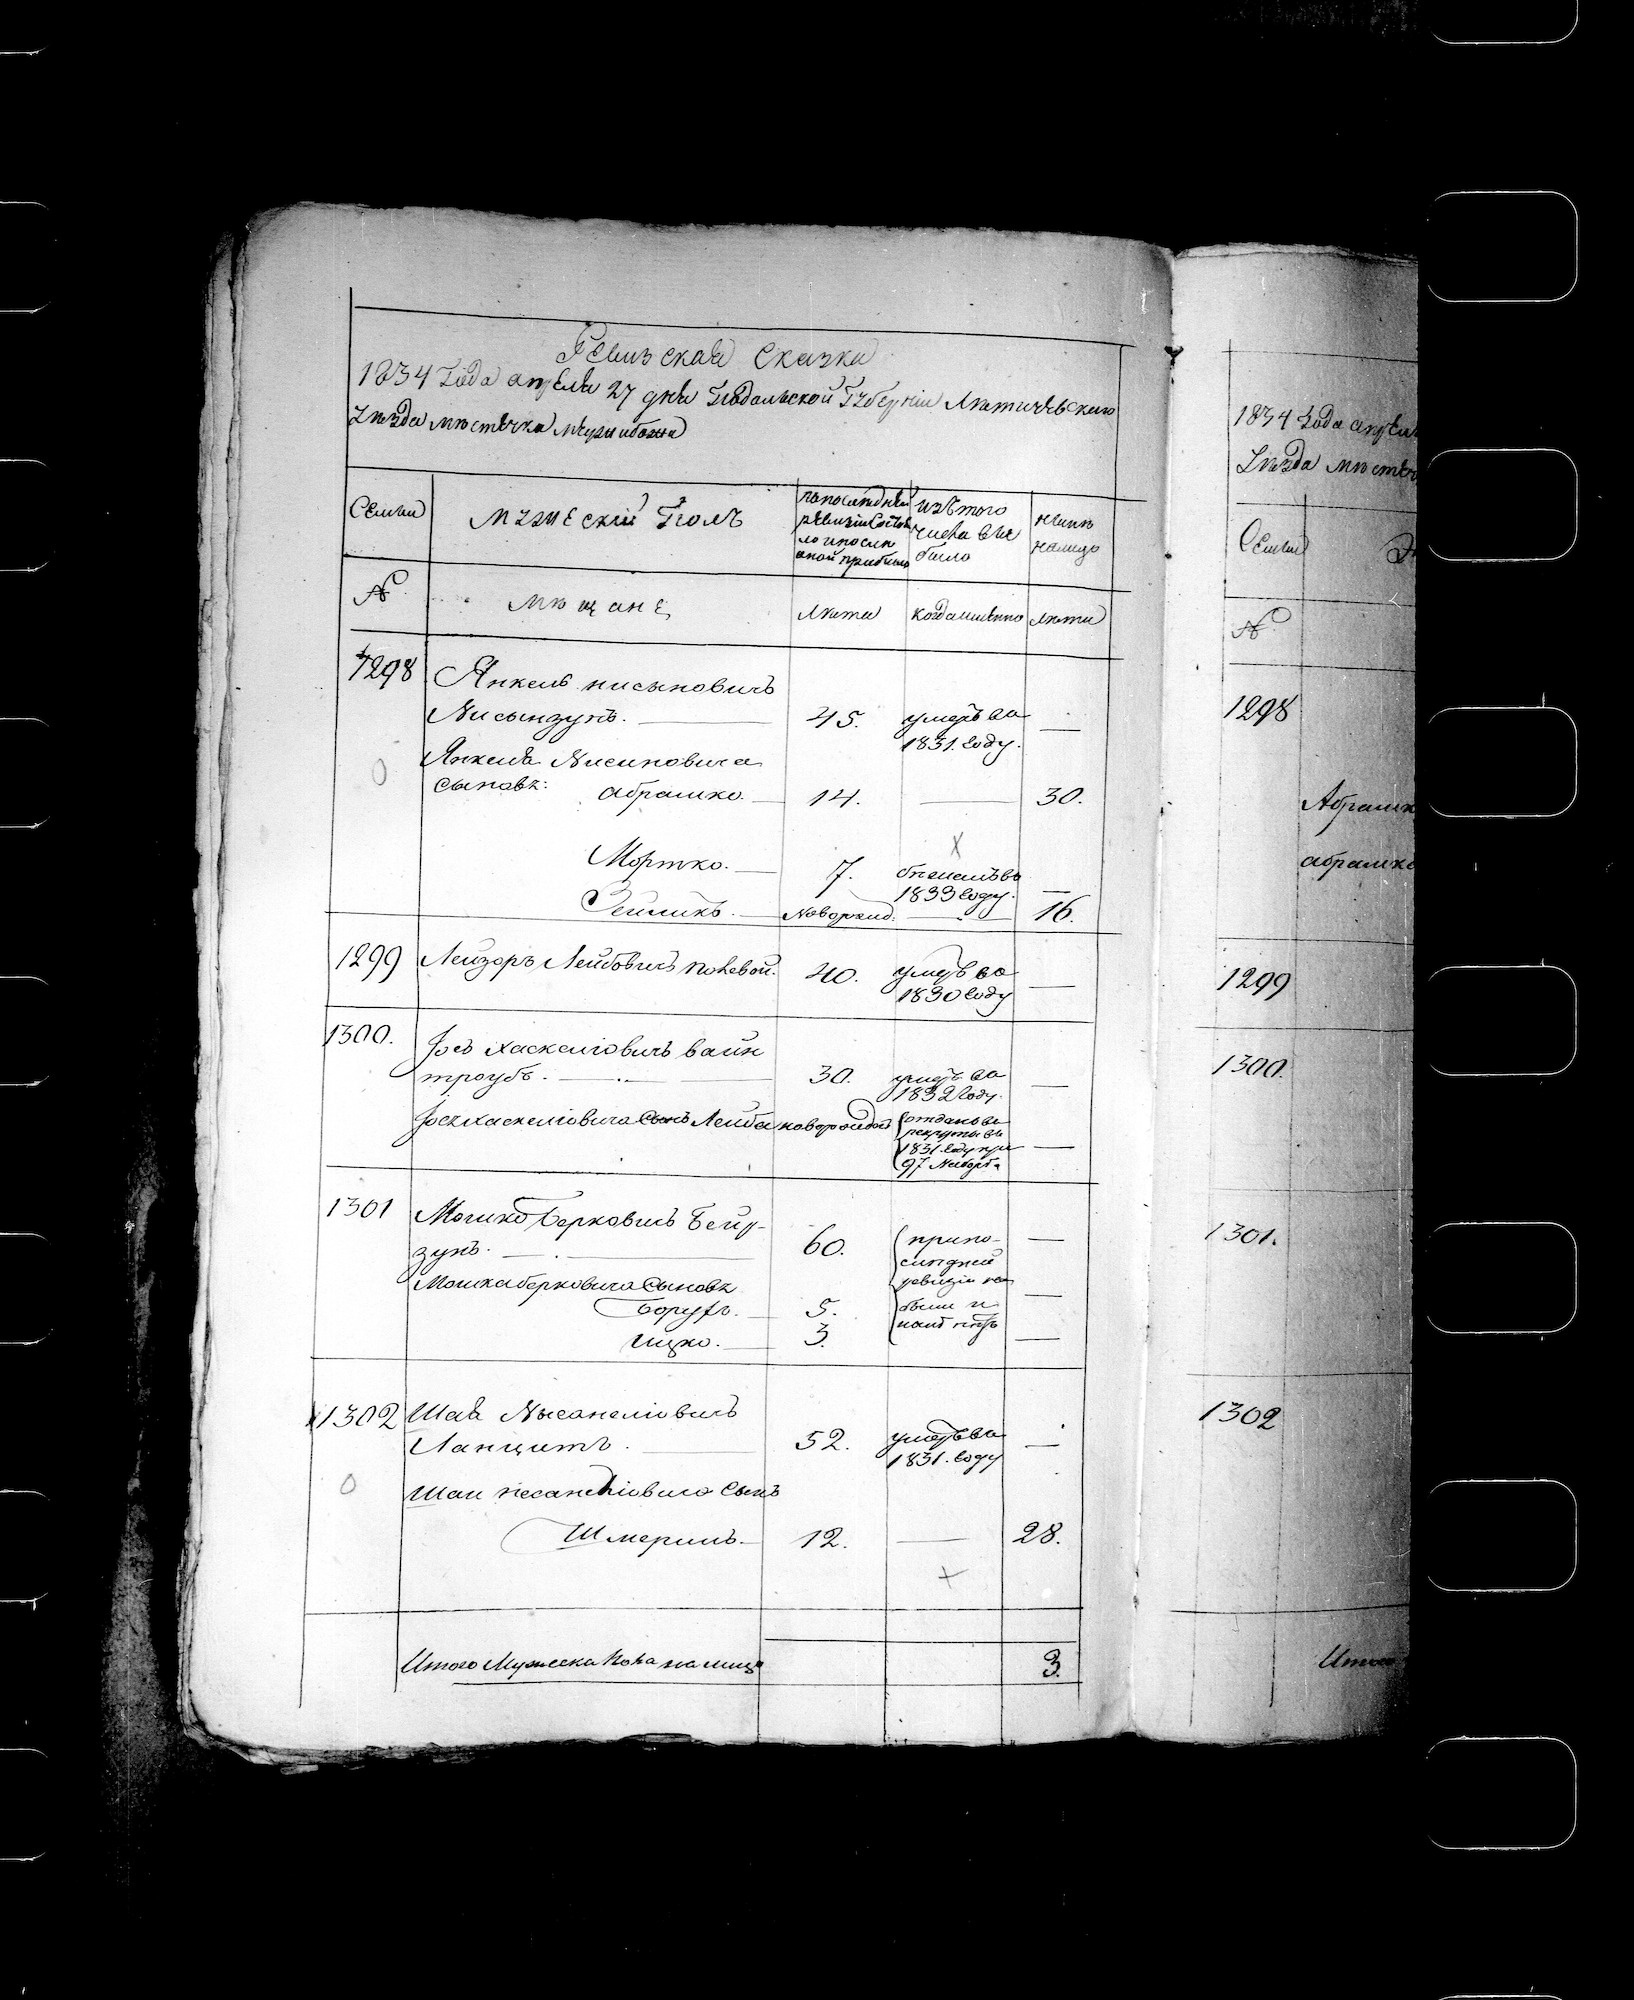 Ревизская Сказка
1834 Года апреля 27 дня Подольской Губернiи Летичевского
Уезда местечка Межибожа
Семьи
Мужескiй Полъ
по последней
ревизiи состоя
ло и после
оной прибыло
изъ того
числа вы
было
ныне
налицо
№
мещане
лета
когда имянно
лета
1298
Янкель нисиновичъ
Нисынзунъ.
45.
умеръ во
1831. году.
Янкеля Нисиновича
сыновъ: абрамко.
14.
30.
Мортко.
7.
бежалъ въ
1833 году.
Зейликъ.
Новорожд.
16.
1299
Лейзоръ Лейбовичъ полевой.
40.
умеръ во
1830 году
1300.
Iосъ Хаскелговичъ вайн
троубъ.
30.
умеръ во
1832 году.
Iося хаскелiовича сынъ Лейба
новорождон
отданъ въ
рекруты въ
1831. году при
97 Наборѣ
1301
Мошко Берковичъ Бейр-
зунъ.
60.
при по-
следней
ревизiи не
были и
ныне нетъ
Мошка берковича сыновъ
Борухъ.
5.
Ицко.
3.
1302
Шая Нысанелiовичъ
Ланцитъ.
52.
умеръ во
1831. году
Шаи несанелiовича сынъ
Шмерилъ.
12.
28.
Итого Мужеска пола на лицо
3.
1834 Года апреля
Уезда место
Семьи
№
1298
Абрамк
абрамко
1299
1300.
1301.
1302
Итого